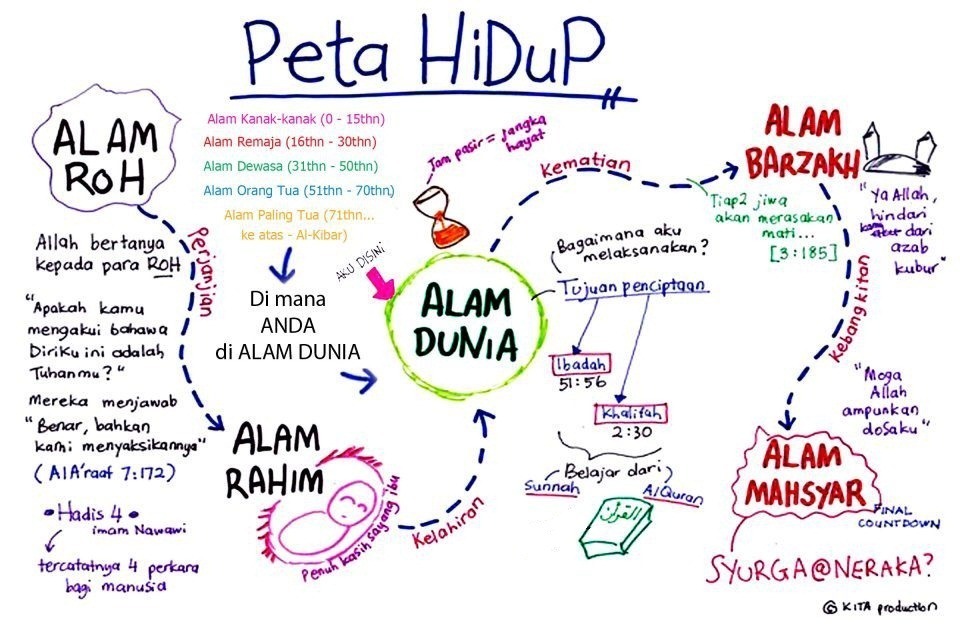 Peta HiDuP
ALAM
ROH
Alam Kanak-kanak (0 - 15thn)
Alam Remaja (16thn - 30thn)
Alam Dewasa (31thn - 50thn)
Alam Orang Tua (51thn - 70thn)
Alam Paling Tua (71thn...
ke atas - Al-Kibar)
Di mana
ANDA
di ALAM DUNIA
Perjanjian
Allah bertanya
kepada para ROH
"Apakah kamu
mengakui bahawa
Diriku ini adalah
Tuhanmu?"
Mereka menjawab
"Benar, bahkan
kami menyaksikannya"
(Al A'raaf 7:172)
• Hadis 4 •
imam Nawawi
tercatatnya 4 perkara
bagi manusia
ALAM
RAHIM
Penuh kasih sayang ibu
Kelahiran
Jam pasir = jangka
hayat
AKU DISINI
ALAM
DUNIA
Bagaimana aku
melaksanakan?
Tujuan penciptaan
Ibadah
51:56
Khalifah
2:30
Belajar dari
Sunnah
AlQuran
القرآن
Kematian
ALAM
BARZAKH
Tiap2 jiwa
akan merasakan
mati...
[3:185]
"Ya Allah,
hindari
dari
azab
kubur"
Kebangkitan
"Moga
Allah
ampunkan
dosaku"
ALAM
MAHSYAR
FINAL
COUNTDOWN
SYURGA@NERAKA?
© KITA production